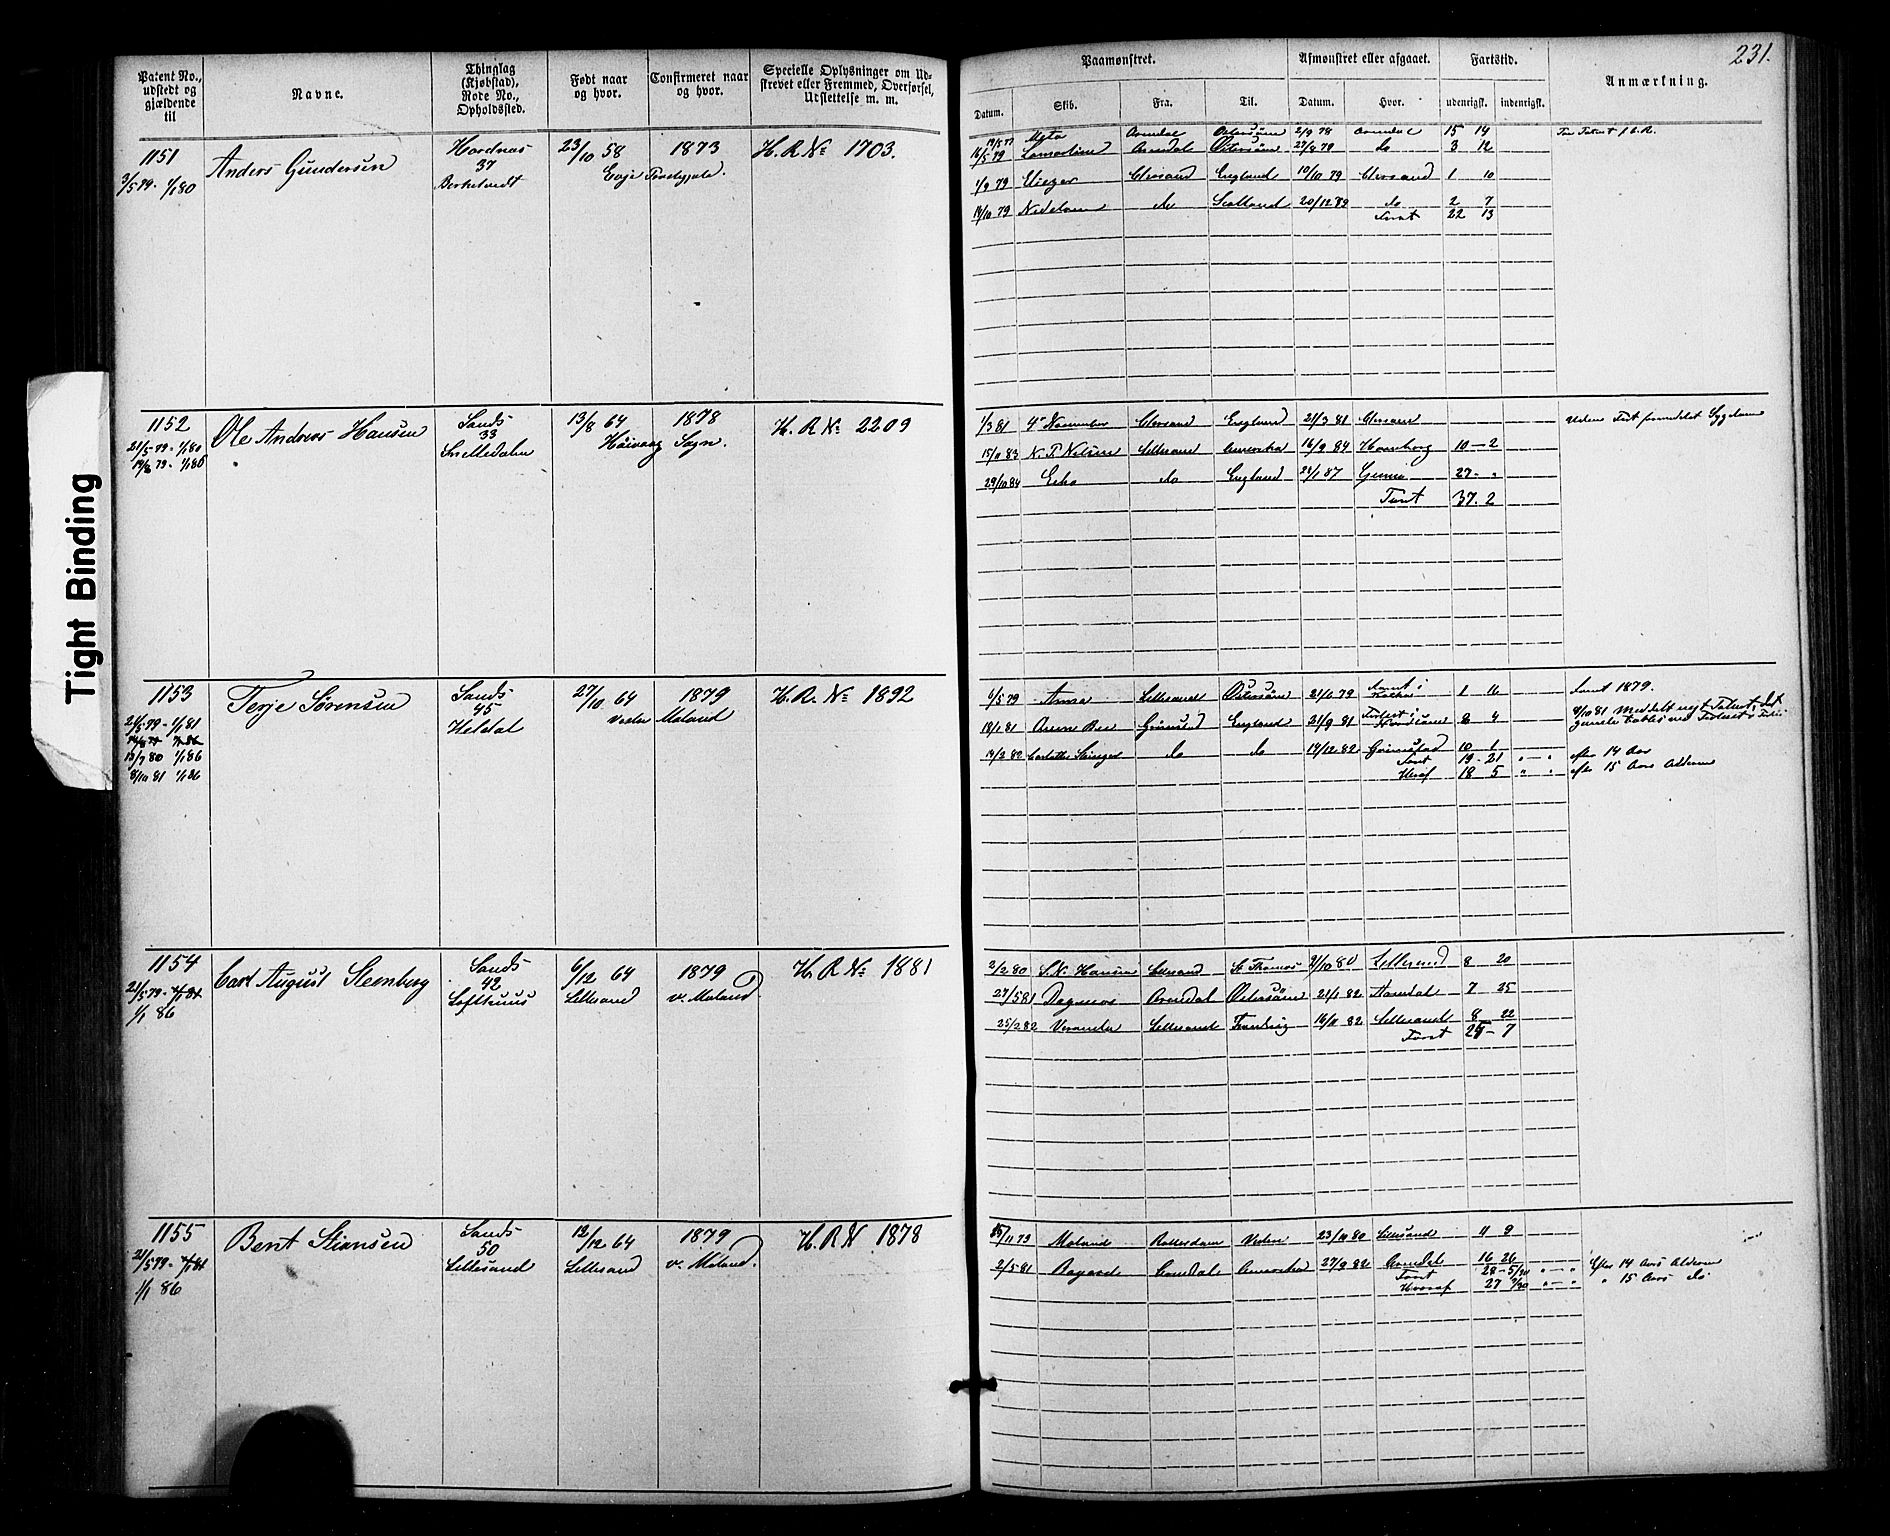 Tight Binding
231.
Patent No., udstedt og gjældende til
Navne.
Thinglag (Kjøbstad), Rode No., Opholdssted.
Født naar og hvor.
Confirmeret naar og hvor.
Specielle Oplysninger om Udskrevet eller Fremmed, Overførsel, Udslettelse m. m.
Paamønstret.
Afmønstret eller afgaaet.
Fartstid.
Anmærkning.
Datum.
Skib.
Fra.
Til.
Datum.
Hvor.
udenrigsk.
indenrigsk.
1151
3/5 79 - 1/1 80
Anders Gundersen
37
23/10 58
Evje
1873
H. R. No 1703.
Meta Arendal Østersøen 2/9 78 Arendal 15 14
16/5 79 Arendal Østersøen 27/8 79 do 3 12
1/9 79 Eliezer Chrsand England 10/10 79 Chrsand 1 10
14/10 79 do Scotland 20/12 89 do 2 7
Tient 22 13
1152
21/5 79 - 1/1 80
Ole Andreas Hansen
Sands
33
13/8 64
Høivaag Sogn.
1878
H. R. No 2209
1/3 81 4de November Chrsand England 21/3 81 Chrsand
15/11 83 N. P. Nielsen Lillesand Amerika 16/9 84 Hamborg 10 - 2
29/10 84 Echo do England 22/1 87 27 - "
Tient 37. 2
1153
21/5 79 - 1/1 81
13/7 80 1/1 86
8/10 81 1/1 86
Terje Sørensen
Sands
45
Heldal
27/10 64
Vestre Moland
1879
H. R. No 1892
6/5 79 Anna Lillesand Østersøen 21/6 79 1 16
18/1 81 Grimstad England 21/9 81 8 4
14/2 82 do do 14/12 82 Grimstad 10 1
Tient 19 - 21 " - "
Heraf 18 5 " "
1879.
8/10 81 Meddelt nyt Patent, det gamle
efter 14 Aar
efter 15 Aars Alderen
1154
21/5 79 - 1/1 81
1/1 86
Carl August Stemberg
Sands
42
Lofthuus
6/12 64
Lillesand
1879
v. Moland
H. R. No 1881
2/2 80 S. N. Hansen Lillesand St Thomas 2/10 80 Lillesand 8 20
27/5 81 Dagmar Arendal Østersøen 21/1 82 Arendal 7 25
25/2 82 Lillesand 16/11 82 Lillesand 8 22
Tient 25 - 7
1155
21/5 79 - 1/1 81
1/1 86
Bent Stiansen
Sands
50
Lillesand
12/12 64
Lillesand
1879
v. Moland.
H. R. N 1878
15/11 79 Moland Rotterdam 23/10 80 Lillesand 11 9
2/5 81 Arendal Amerika 27/9 82 Arendal 16 26
Tient 28 - 5/30 " - "
Heraf 27 9/30 " - "
Efter 14 Aars Alderen
" 15 Aars do